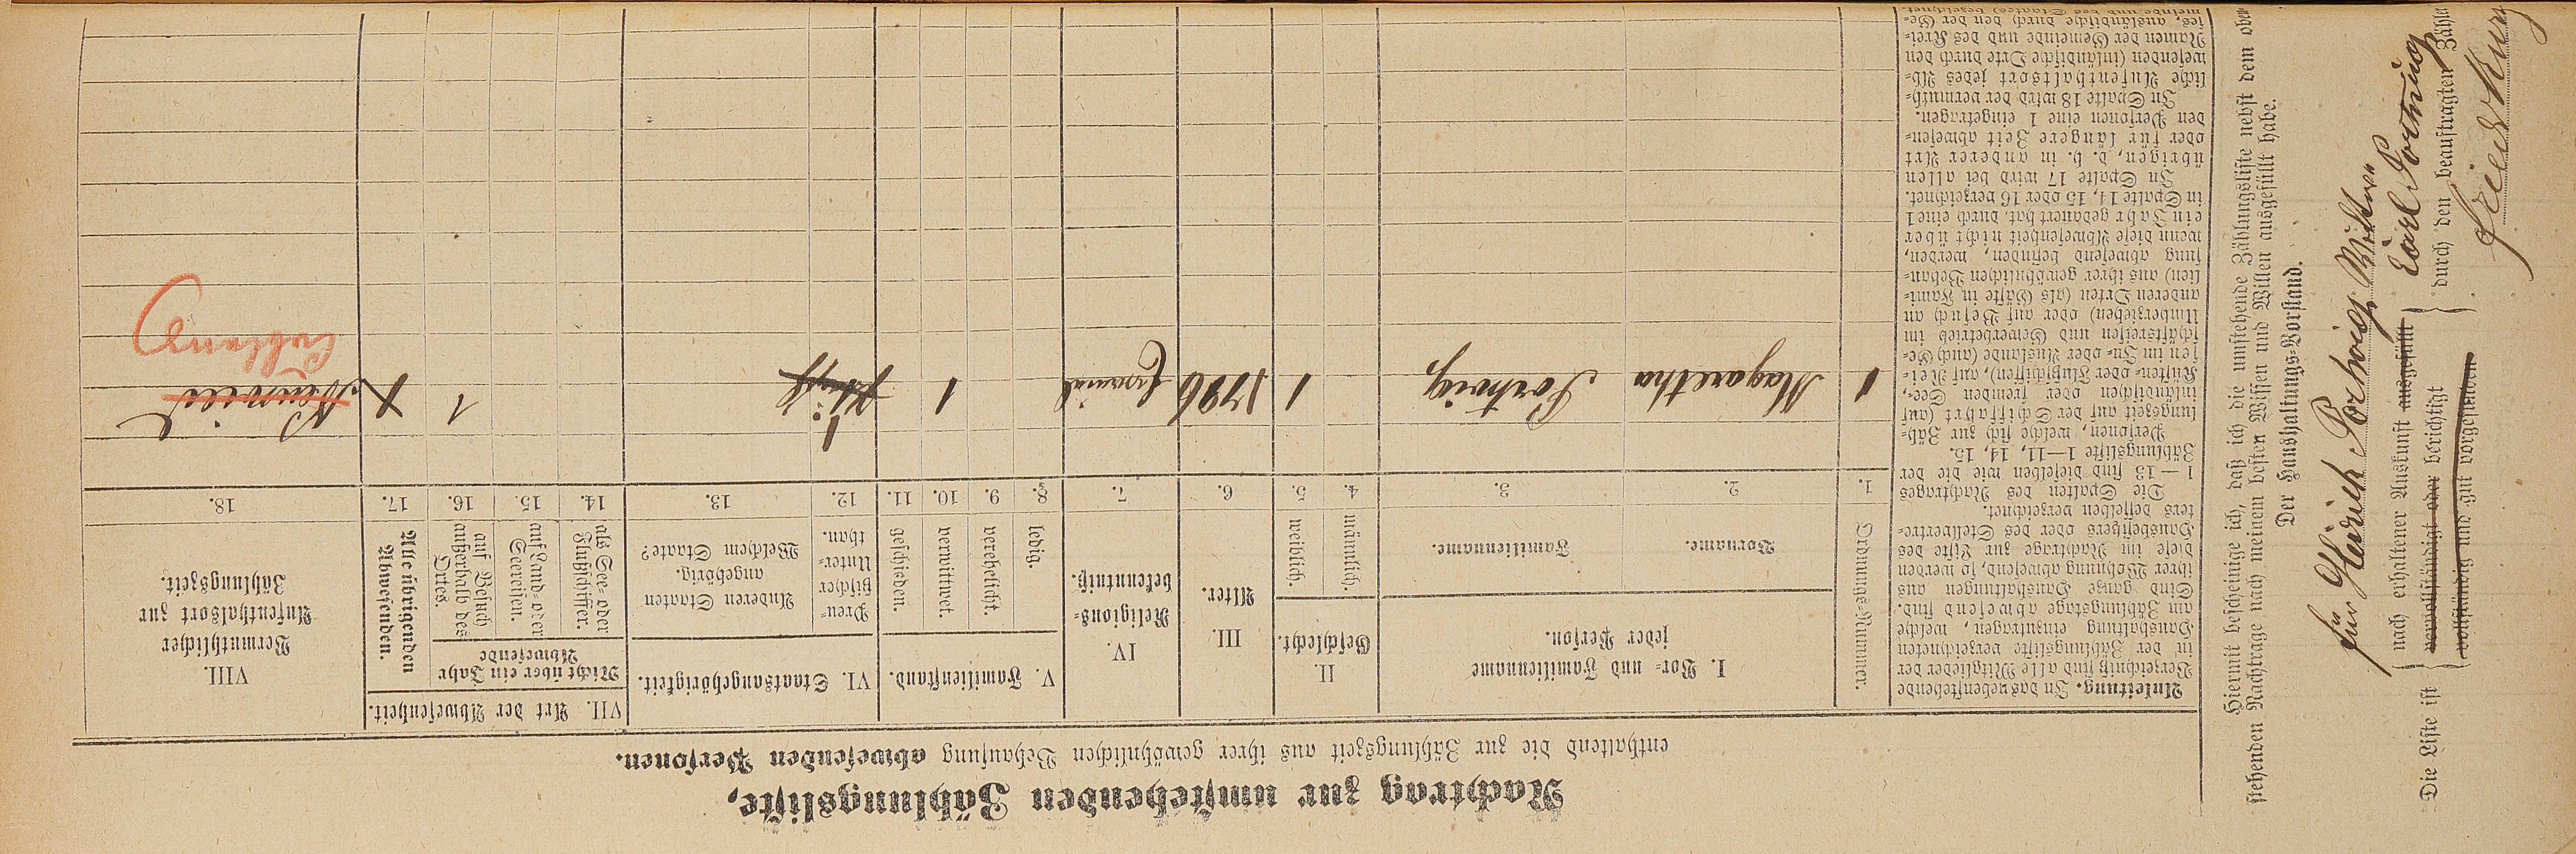 Nachtrag zur umstehenden Zählungsliste,
enthaltend die zur Zählungszeit aus ihrer gewöhnlichen Behausung abwesenden Personen.
Anleitung. In das nebenstehende
Verzeichniß sind alle Mitglieder der
in der Zählungsliste verzeichneten
Haushaltung einzutragen, welche
am Zählungstage abwesend sind.
Sind ganze Haushaltungen aus
ihrer Wohnung abwesend, so werden
diese im Nachtrage zur Liste des
Hausbesitzers oder des Stellvertre-
ters desselben verzeichnet.
Die Spalten des Nachtrages
1—13 sind dieselben wie die der
Zählungsliste 1—11, 14, 15.
Personen, welche sich zur Zäh-
lungszeit auf der Schifffahrt (auf
inländischen oder fremden See-,
Küsten- oder Flußschiffen), auf Rei-
sen im In- oder Auslande (auch Ge-
schäftsreisen und Gewerbebetrieb im
Umherziehen) oder auf Besuch an
anderen Orten (als Gäste in Fami-
lien) aus ihrer gewöhnlichen Behau-
sung abwesend befinden, werden,
wenn diese Abwesenheit nicht über
ein Jahr gedauert hat, durch eine 1
in Spalte 14, 15 oder 16 verzeichnet.
In Spalte 17 wird bei allen
übrigen, d. h. in anderer Art
oder für längere Zeit abwesen-
den Personen eine 1 eingetragen.
In Spalte 18 wird der vermuth-
liche Aufenthaltsort jedes Ab-
wesenden (inländische Orte durch den
Namen der Gemeinde und des Krei-
ses, ausländische durch den der Ge-
meinde und des Staates) bezeichnet.
Ordnungs-Nummer.
I. Vor- und Familienname
jeder Person.
Vorname.
Familienname.
II.
Geschlecht.
männlich.
weiblich.
III.
Alter.
IV.
Religions-
bekenntniß.
V. Familienstand.
ledig.
verehelicht.
verwittwet.
geschieden.
VI. Staatsangehörigkeit.
Preu-
ßischer
Unter-
than.
Anderen Staaten
angehörig.
Welchem Staate?
VII. Art der Abwesenheit.
Nicht über ein Jahr
Abwesende
als See- oder
Flußschiffer.
auf Land- oder
Seereisen.
auf Besuch
außerhalb des
Ortes.
Alle übrigen
Abwesenden.
VIII.
Vermuthlicher
Aufenthaltsort zur
Zählungszeit.
1. 2. 3. 4. 5. 6. 7. 8. 9. 10. 11. 12. 13. 14. 15. 16. 17. 18.
1 Magaretha Portwig 1 1 1 1 Neuwied
Coblenz
Hiermit bescheinige ich, daß ich die umstehende Zählungsliste nebst dem oben
stehenden Nachtrage nach meinem besten Wissen und Willen ausgefüllt habe.
Der Haushaltungs-Vorstand.
für Heinrich Portwig Wittwe
Carl Portwig
Die Liste ist
nach erhaltener Auskunft ausgefüllt
vervollständigt oder berichtigt
vollständig und gut vorgefunden
durch den beauftragten Zähler